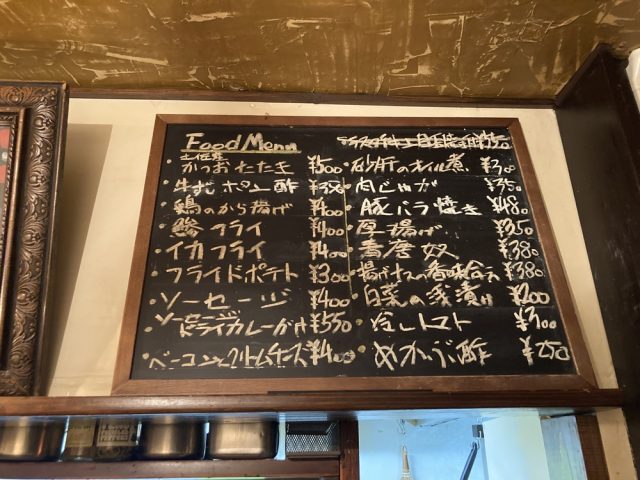 Food Menu
土佐産
・かつおたたき ¥500
・牛すじポン酢
・鶏のから揚げ ¥400
・鯵フライ ¥400
・イカフライ ¥400
・フライドポテト ¥300
・ソーセージ ¥400
・ソーセージ
ドライカレーがけ ¥550
・ベーコンとクリームチーズ ¥400
・砂肝のオイル煮 ¥300
・肉じゃが ¥350
・豚バラ焼き ¥480
・厚揚げ ¥350
・青唐奴 ¥380
・揚げナスの香味合え ¥380
・白菜の浅漬け ¥200
・冷しトマト ¥300
・めかぶ酢 ¥250